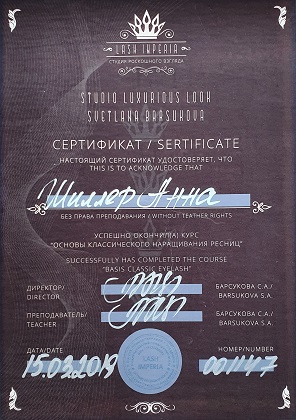 LASH IMPERIA
СТУДИЯ РОСКОШНОГО ВЗГЛЯДА
STUDIO LUXURIOUS LOOK
SVETLANA BARSUKOVA
СЕРТИФИКАТ / SERTIFICATE
НАСТОЯЩИЙ СЕРТИФИКАТ УДОСТОВЕРЯЕТ, ЧТО
THIS IS TO ACKNOWLEDGE THAT
Шиллер Анна
БЕЗ ПРАВА ПРЕПОДАВАНИЯ / WITHOUT TEATHER RIGHTS
УСПЕШНО ОКОНЧИЛ(А) КУРС
"ОСНОВЫ КЛАССИЧЕСКОГО НАРАЩИВАНИЯ РЕСНИЦ"
SUCCESSFULLY HAS COMPLETED THE COURSE
"BASIS CLASSIC EYELASH"
ДИРЕКТОР/
DIRECTOR
БАРСУКОВА С.А./
BARSUKOVA S.A.
ПРЕПОДАВАТЕЛЬ/
TEACHER
БАРСУКОВА С.А./
BARSUKOVA S.A.
ДАТА/DATE
НОМЕР/NUMBER
15.03.2019
001147
LASH
IMPERIA